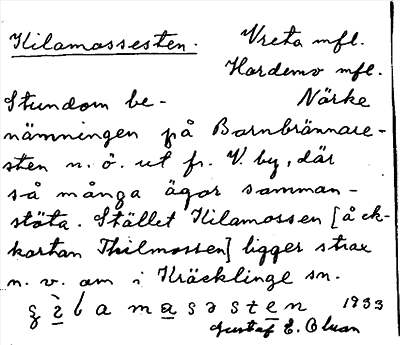 Kilamossesten. Vreta mfl.
Hardemo mfl.
Stundom be- Närke
nämningen på Barnbrännare-
sten n. ö. ut fr. V. by, där
så många ägor samman-
stöta. Stället Kilamossen [å ek-
kartan Thilmossen] ligger strax
n. v. om i Kräcklinge sn.
m a s ə s t e n 1933
Gustaf E. Olsson